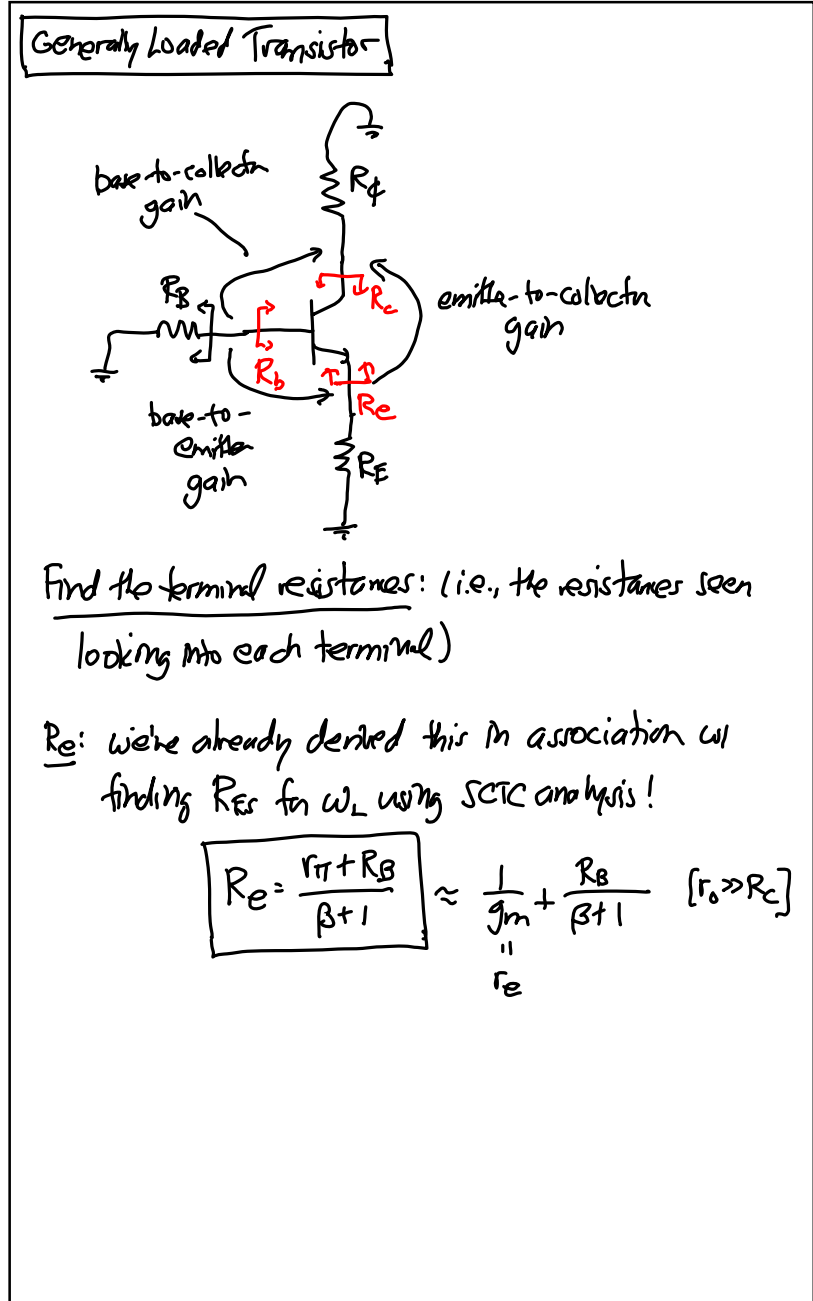 Generally Loaded Transistor
base-to-collector
gain
R_C
R_B
R_c
emitter-to-collector
gain
R_b
R_e
base-to-
emitter
gain
R_E
Find the terminal resistances: (i.e., the resistances seen
looking into each terminal)
Re: we're already derived this in association w/
finding R_ES for ω_L using SCTC analysis!
R_e = (r_π + R_B)/(β+1) ≈ 1/g_m + R_B/(β+1) [r_o >> R_C]
"
r_e